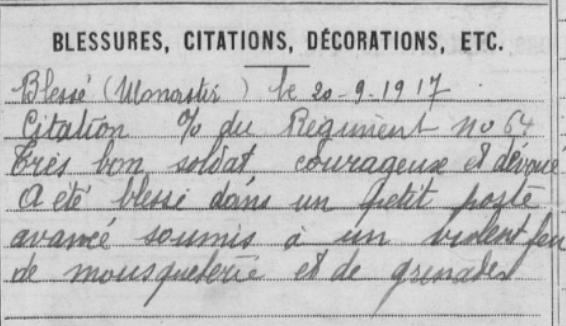 BLESSURES, CITATIONS, DÉCORATIONS, ETC.
Blessé (Monastir) le 20-9-1917
Citation % du Régiment no 64
Très bon soldat courageux et dévoué
A été blessé dans un petit poste
avancé soumis à un violent feu
de mousqueterie et de grenades